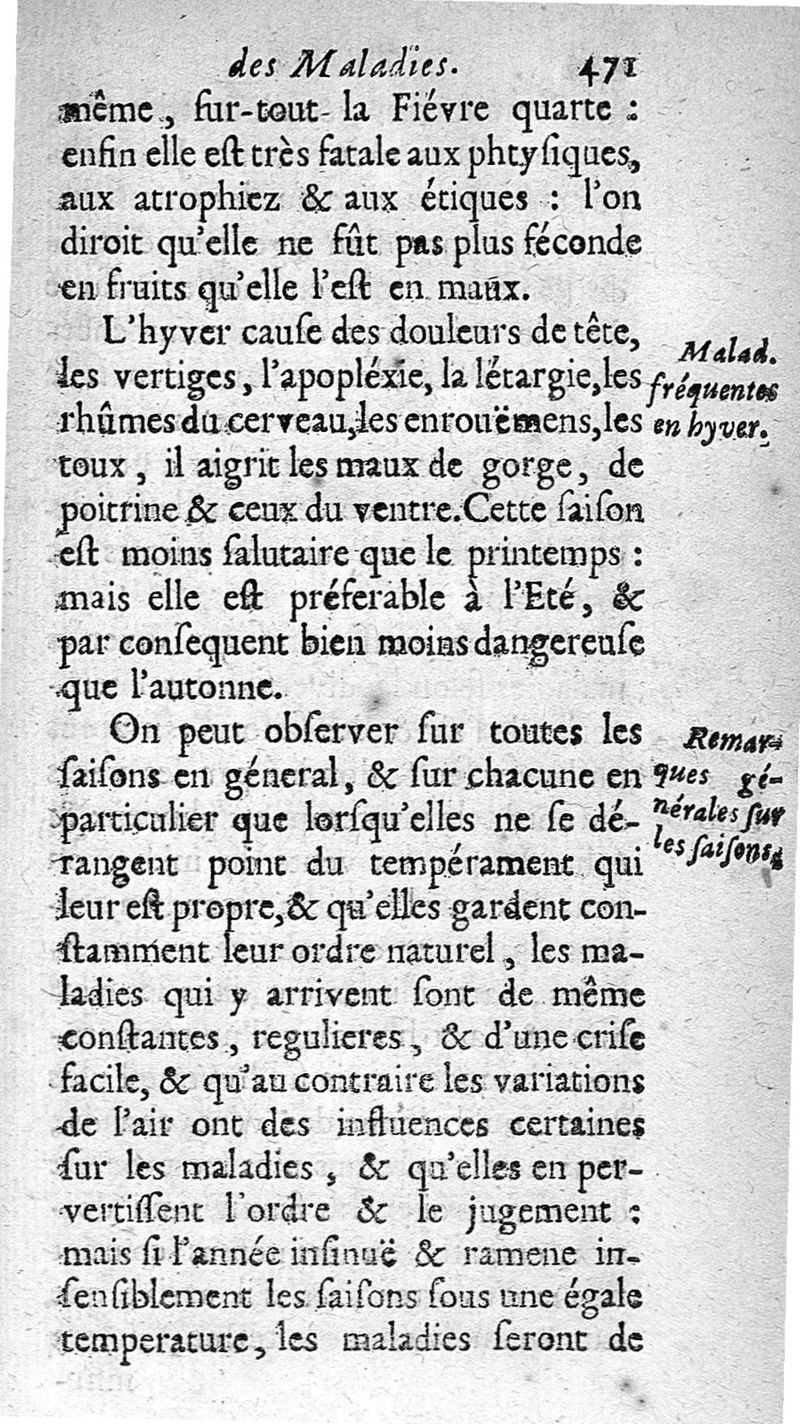 des Maladies. 471
même, ſur-tout la Fiévre quarte :
enfin elle eſt très fatale aux phtyſiques,
aux atrophiez & aux étiques : l'on
diroit qu'elle ne fût pas plus féconde
en fruits qu'elle l'eſt en maux.
L'hyver cauſe des douleurs de tête,
les vertiges, l'apopléxie, la létargie, les
rhûmes du cerveau, les enrouëmens, les
toux, il aigrit les maux de gorge, de
poitrine & ceux du ventre. Cette ſaiſon
eſt moins ſalutaire que le printemps :
mais elle eſt préferable à l'Eté, &
par conſequent bien moins dangereuſe
que l'autonne.
Malad.
fréquentes
en hyver.
On peut obſerver ſur toutes les
ſaiſons en géneral, & ſur chacune en
particulier que lorſqu'elles ne ſe dé-
rangent point du tempérament qui
leur eſt propre, & qu'elles gardent con-
ſtamment leur ordre naturel, les ma-
ladies qui y arrivent ſont de même
conſtantes, regulieres, & d'une criſe
facile, & qu'au contraire les variations
de l'air ont des influences certaines
ſur les maladies, & qu'elles en per-
vertiſſent l'ordre & le jugement :
mais ſi l'année inſinuë & ramene in-
ſenſiblement les ſaiſons ſous une égale
temperature, les maladies ſeront de
Remar-
ques gé-
nérales ſur
les ſaiſons.